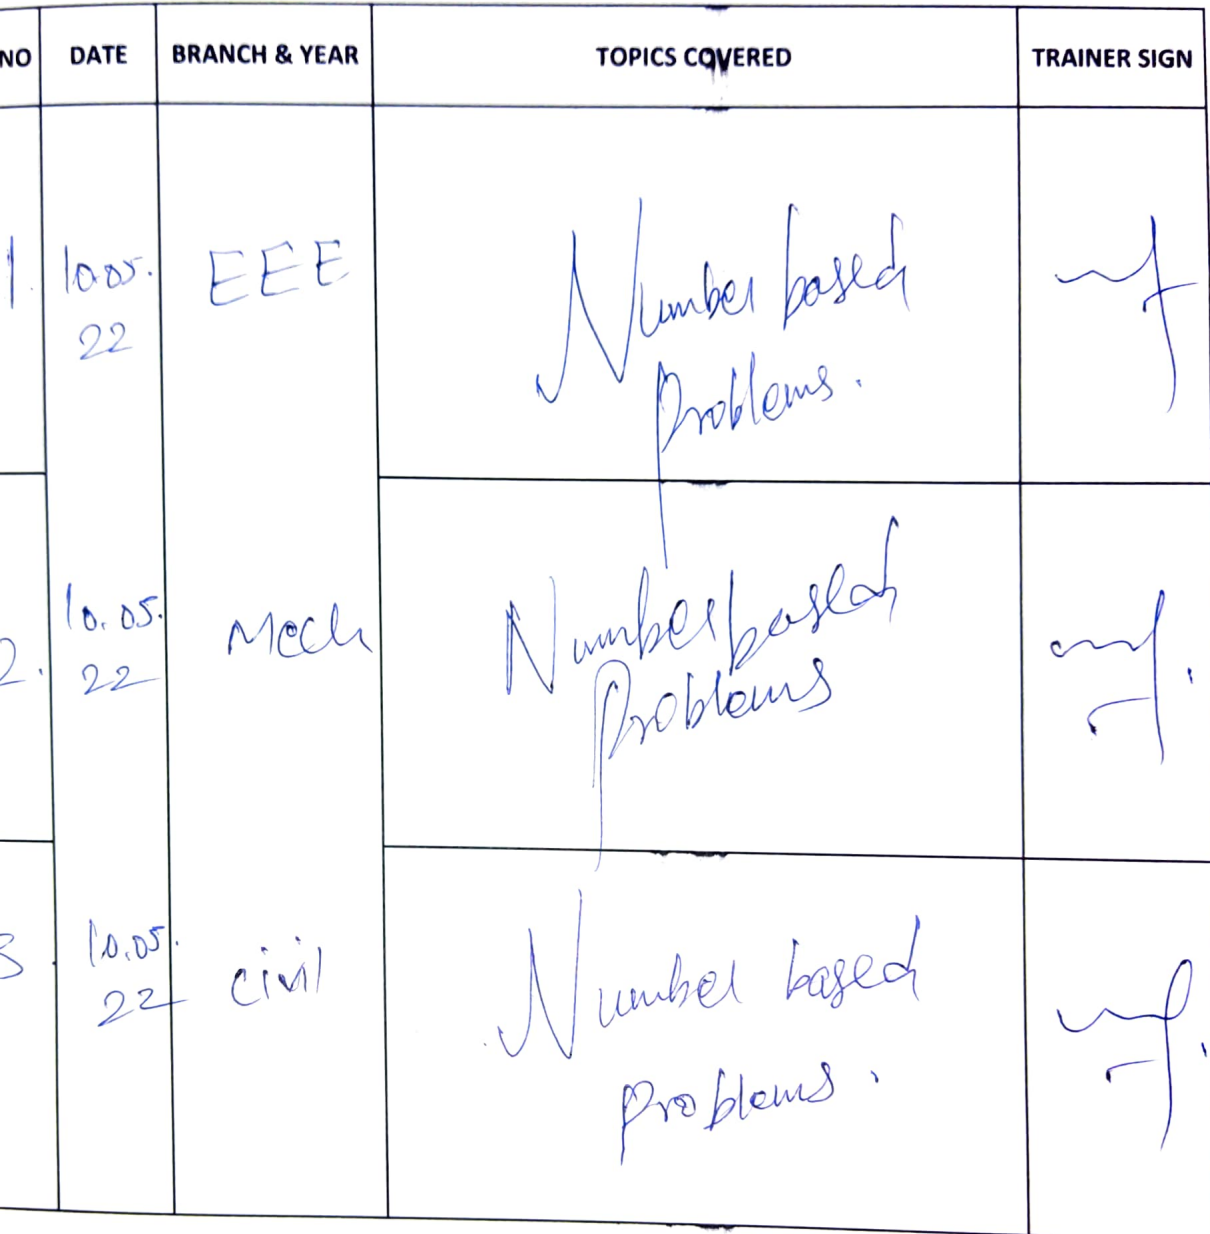 NO DATE BRANCH & YEAR TOPICS COVERED TRAINER SIGN
1. 10.05. EEE Number based
22 Problems.
2. 10.05. Mech Number based
22 Problems
3. 10.05. Civil Number based
22 Problems.